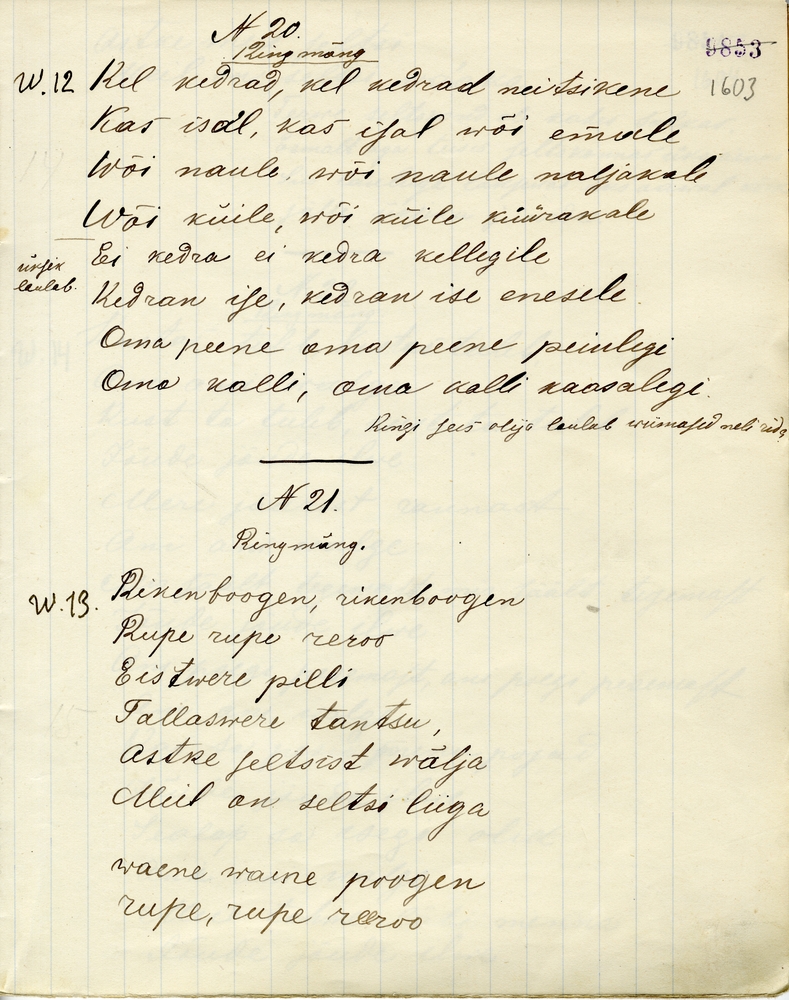 N 20.
Ringmäng
9853
1603
W.12 Kel kedrad, kel kedrad neitsikene
Kas isäl, kas isal wõi emale
Wõi naule, wõi naule naljakale
Wõi küile, wõi küile küürakale
üksik laulab.
Ei kedra ei kedra kellegile
Kedran ise, kedran ise enesele
Oma peene oma peene peiulegi
Oma kalli, oma kalli kaasalegi.
Ringi sees olija laulab wiimased neli rida
N 21.
Ringmäng.
W.13. Rikenboogen, rikenboogen
Rupe rupe reroo
Eistwere pilli
Tallaswere tantsu,
Astke seltsist wälja
Meil on seltsi liiga
waene waene poogen
rupe, rupe reeroo